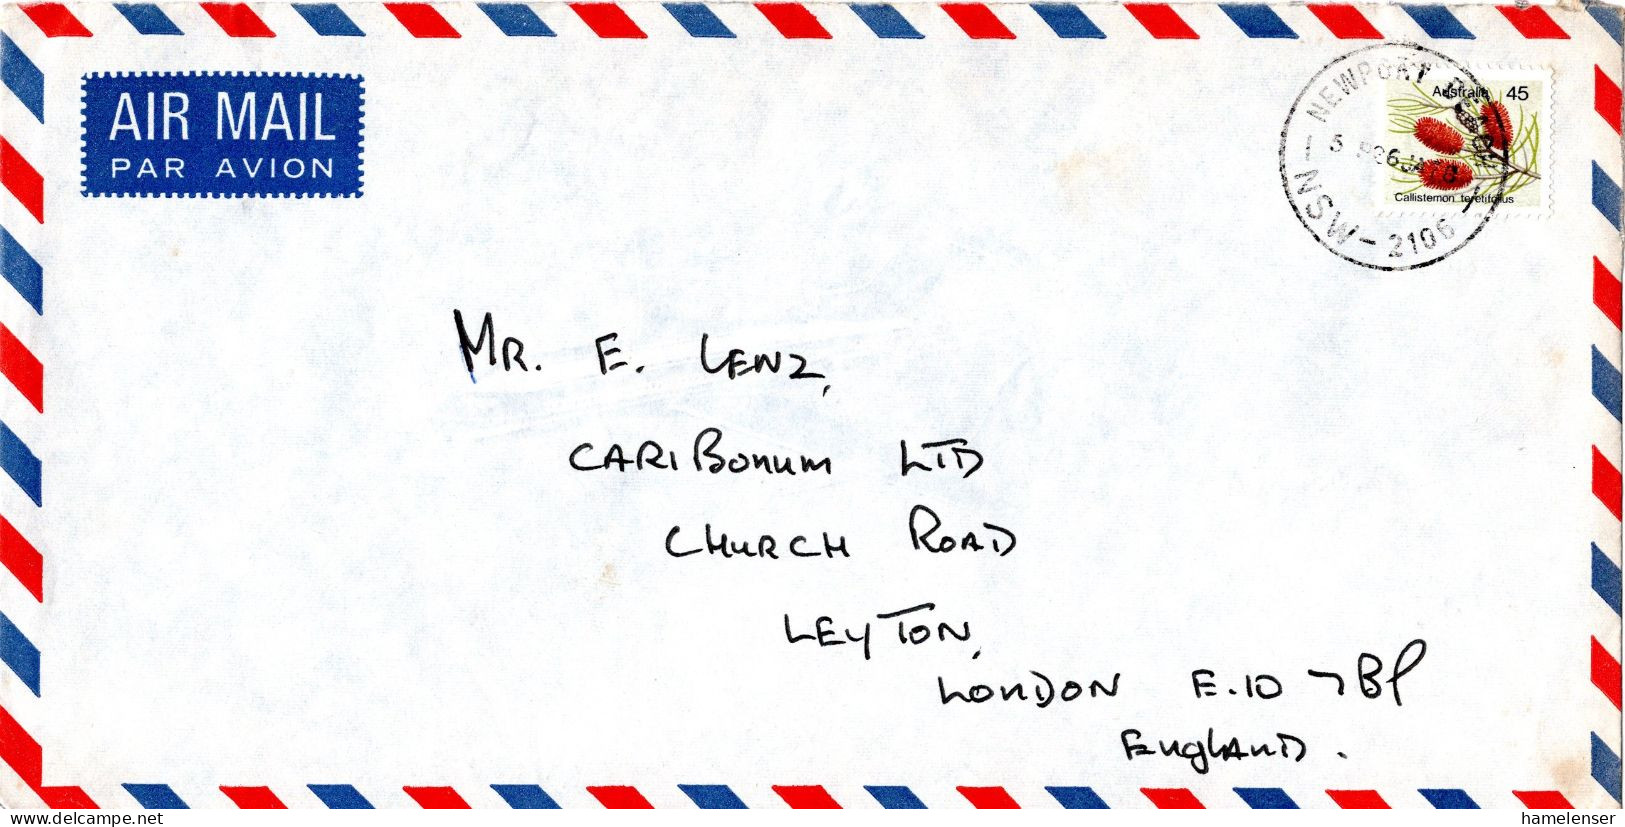 AIR MAIL
PAR AVION
NEWPORT BEACH
Australia 45
Callistemon teretifolius
NSW - 2106
MR. E. LENZ,
CARIBONUM LTD
CHURCH ROAD
LEYTON,
LONDON E.10 7BP
ENGLAND.
www.delcampe.net
hamelenser